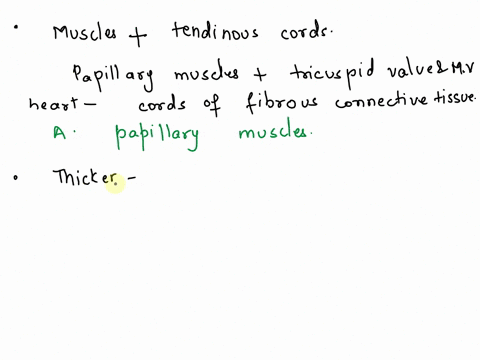 • Muscles + tendinous cords.
Papillary muscles + tricuspid valve & M.V
heart – cords of fibrous connective tissue.
A. papillary muscles.
• Thicker –